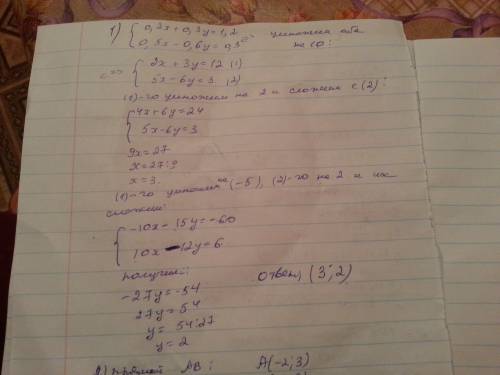 1) { 0,2x + 0,3y = 1,2 умножим оба
0,5x - 0,6y = 0,3 <=> на 10:
<=> { 2x + 3y = 12 (1)
5x - 6y = 3 (2)
(1)-го умножим на 2 и сложим с (2):
{ 4x + 6y = 24
5x - 6y = 3
9x = 27
x = 27:9
x = 3
(1)-го умножим на (-5), (2)-го на 2 и их
сложим:
{ -10x - 15y = -60
10x - 12y = 6
получим:
-27y = -54 Ответ, (3;2)
27y = 54
y = 54:27
y = 2
2) прямой AB: A(-2;3)